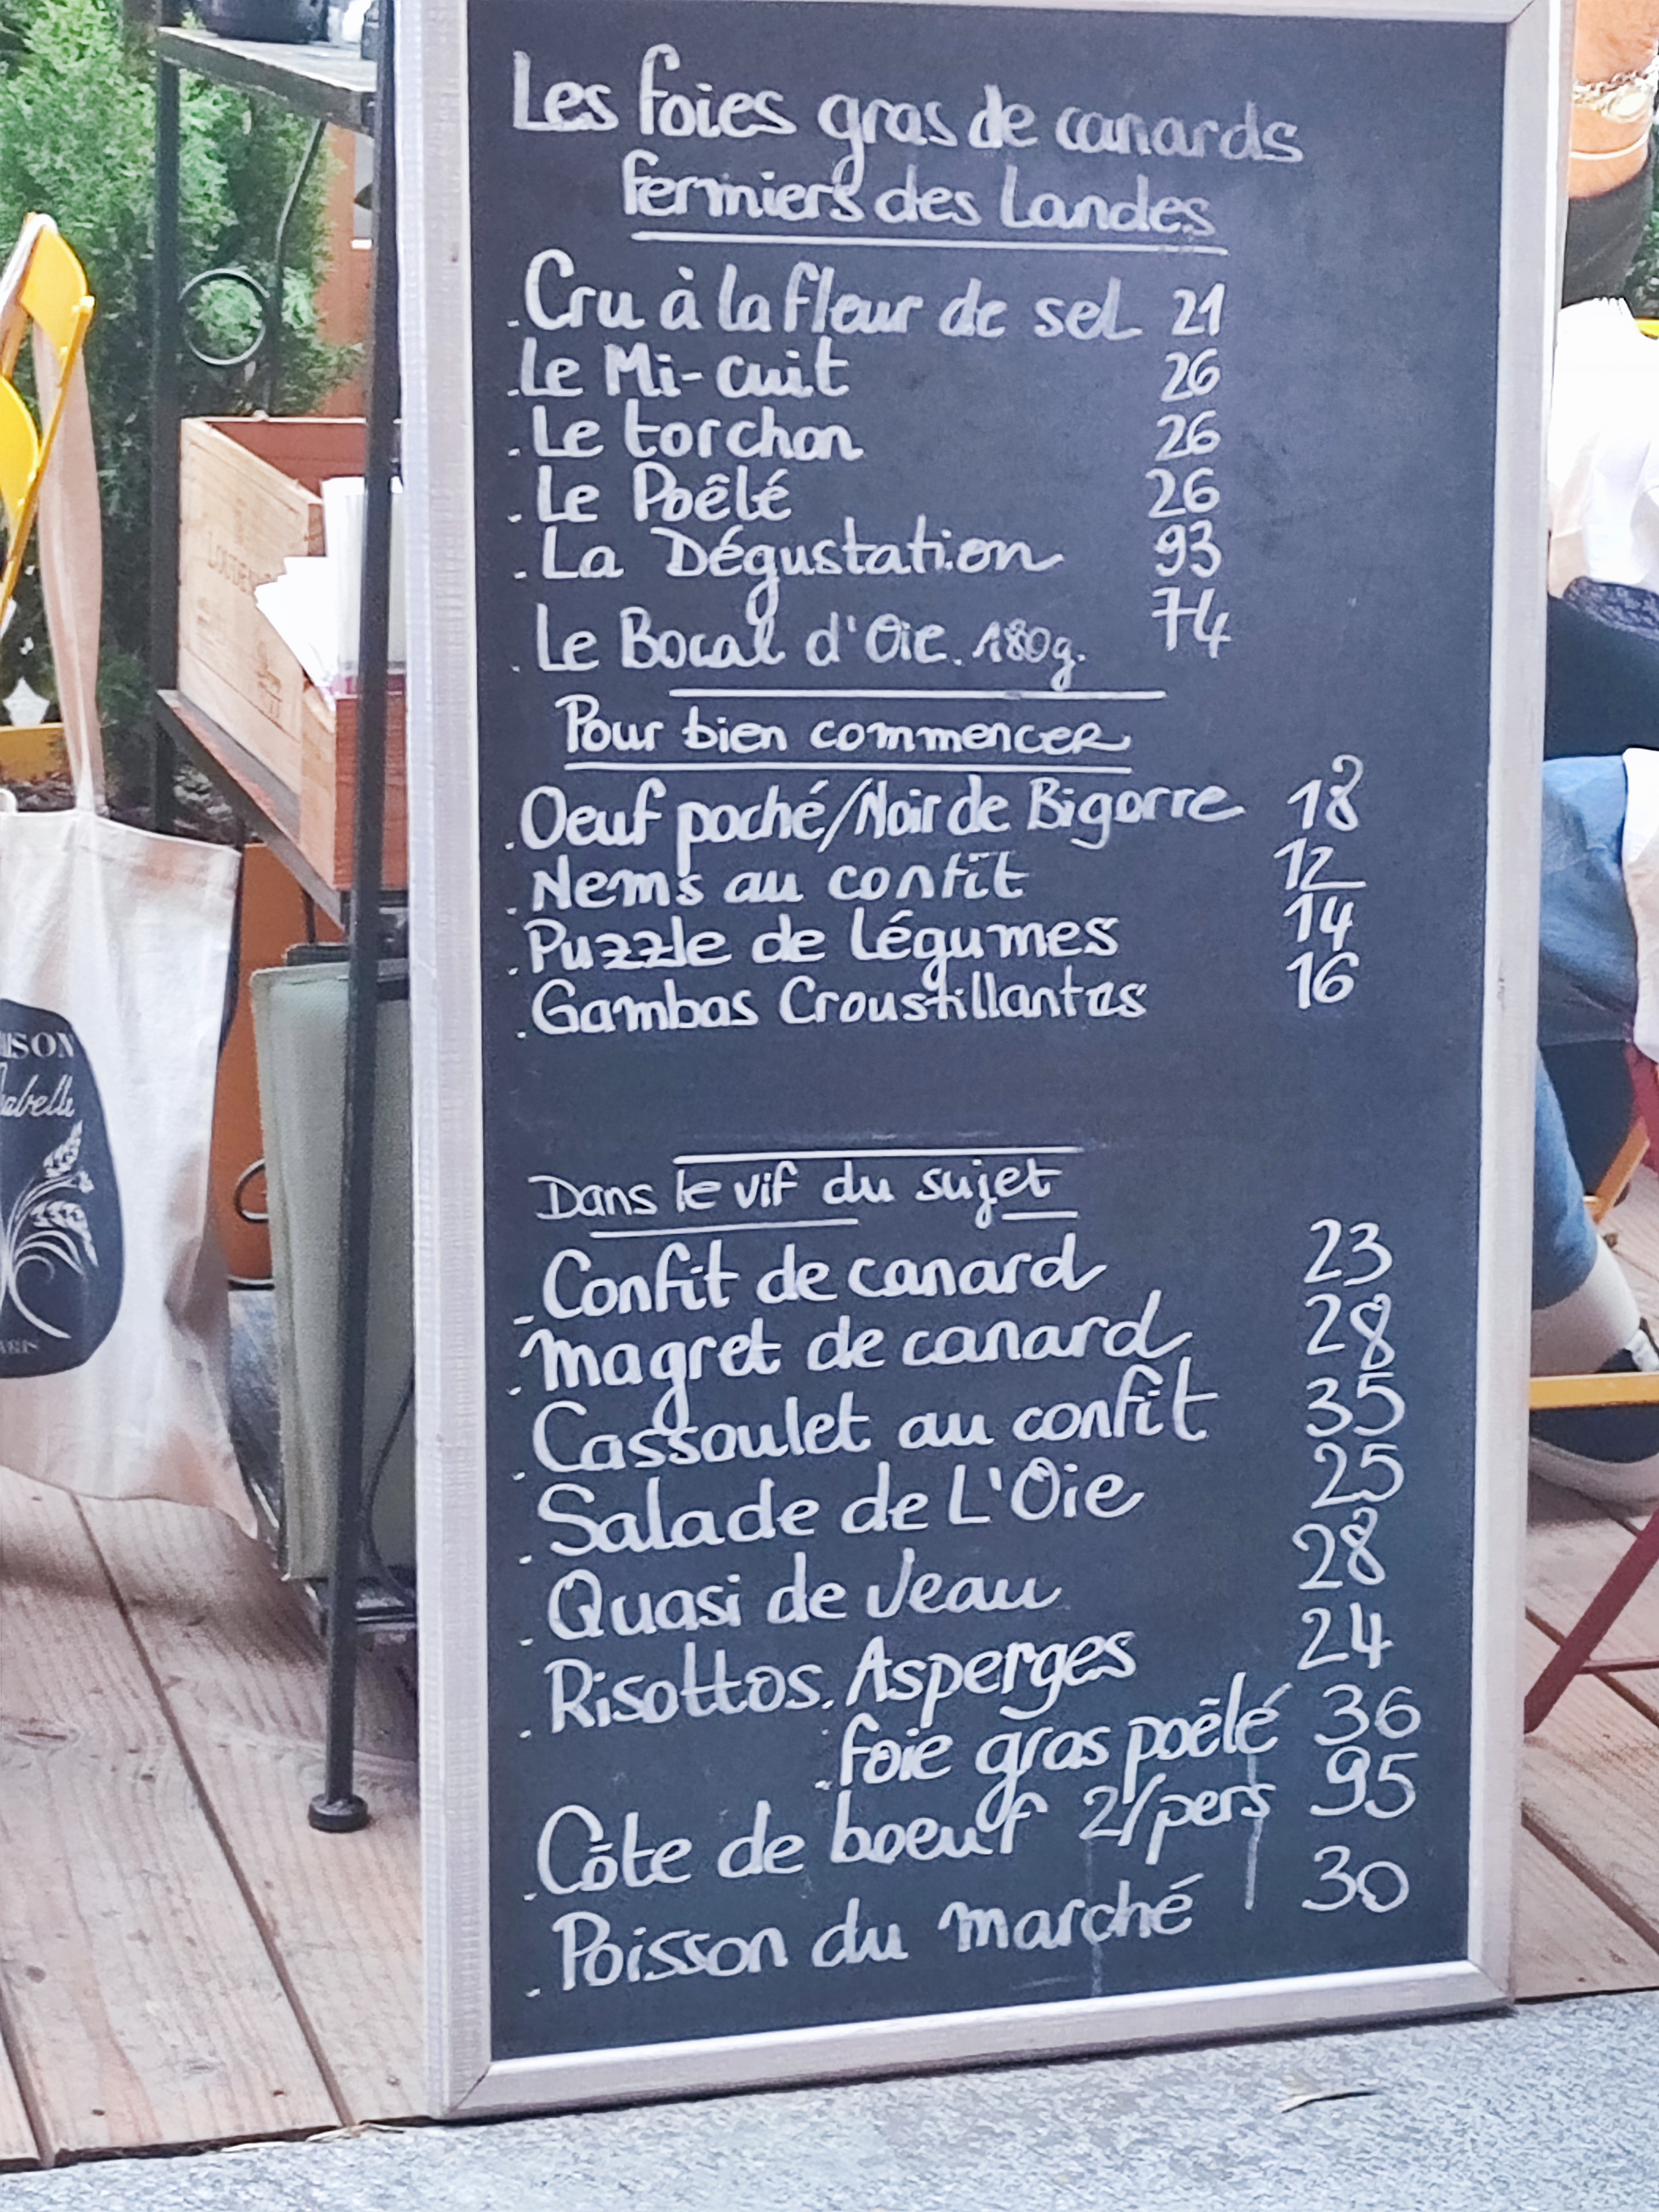 Les foies gras de canards
fermiers des Landes
. Cru à la fleur de sel 21
. Le Mi-cuit 26
. Le torchon 26
. Le Poêlé 26
. La Dégustation 93
. Le Bocal d'Oie. 180g. 74
Pour bien commencer
. Oeuf poché/Noir de Bigorre 18
. Nems au confit 12
. Puzzle de légumes 14
. Gambas Croustillantes 16
Dans le vif du sujet
. Confit de canard 23
. Magret de canard 28
. Cassoulet au confit 35
. Salade de L'Oie 25
. Quasi de Veau 28
. Risottos. Asperges 24
. foie gras poêlé 36
. Côte de boeuf 2/pers 95
. Poisson du marché 30